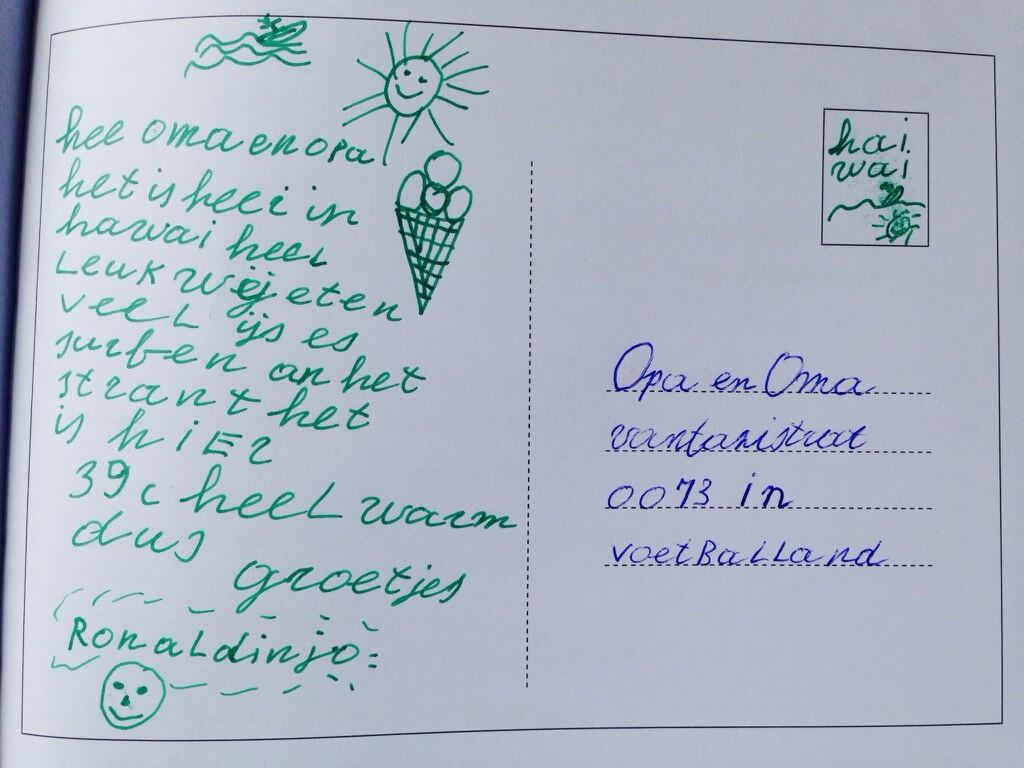 hee oma en opa
het is heer in
hawai heel
Leuk wij eten
veel ijs es
surfen an het
strant het
is hiER
39c heeL warm
dus
groetjes
RonaLdinjo
hai
wai
Opa en Oma
vantanistraat
0073 in
voetBaLLand